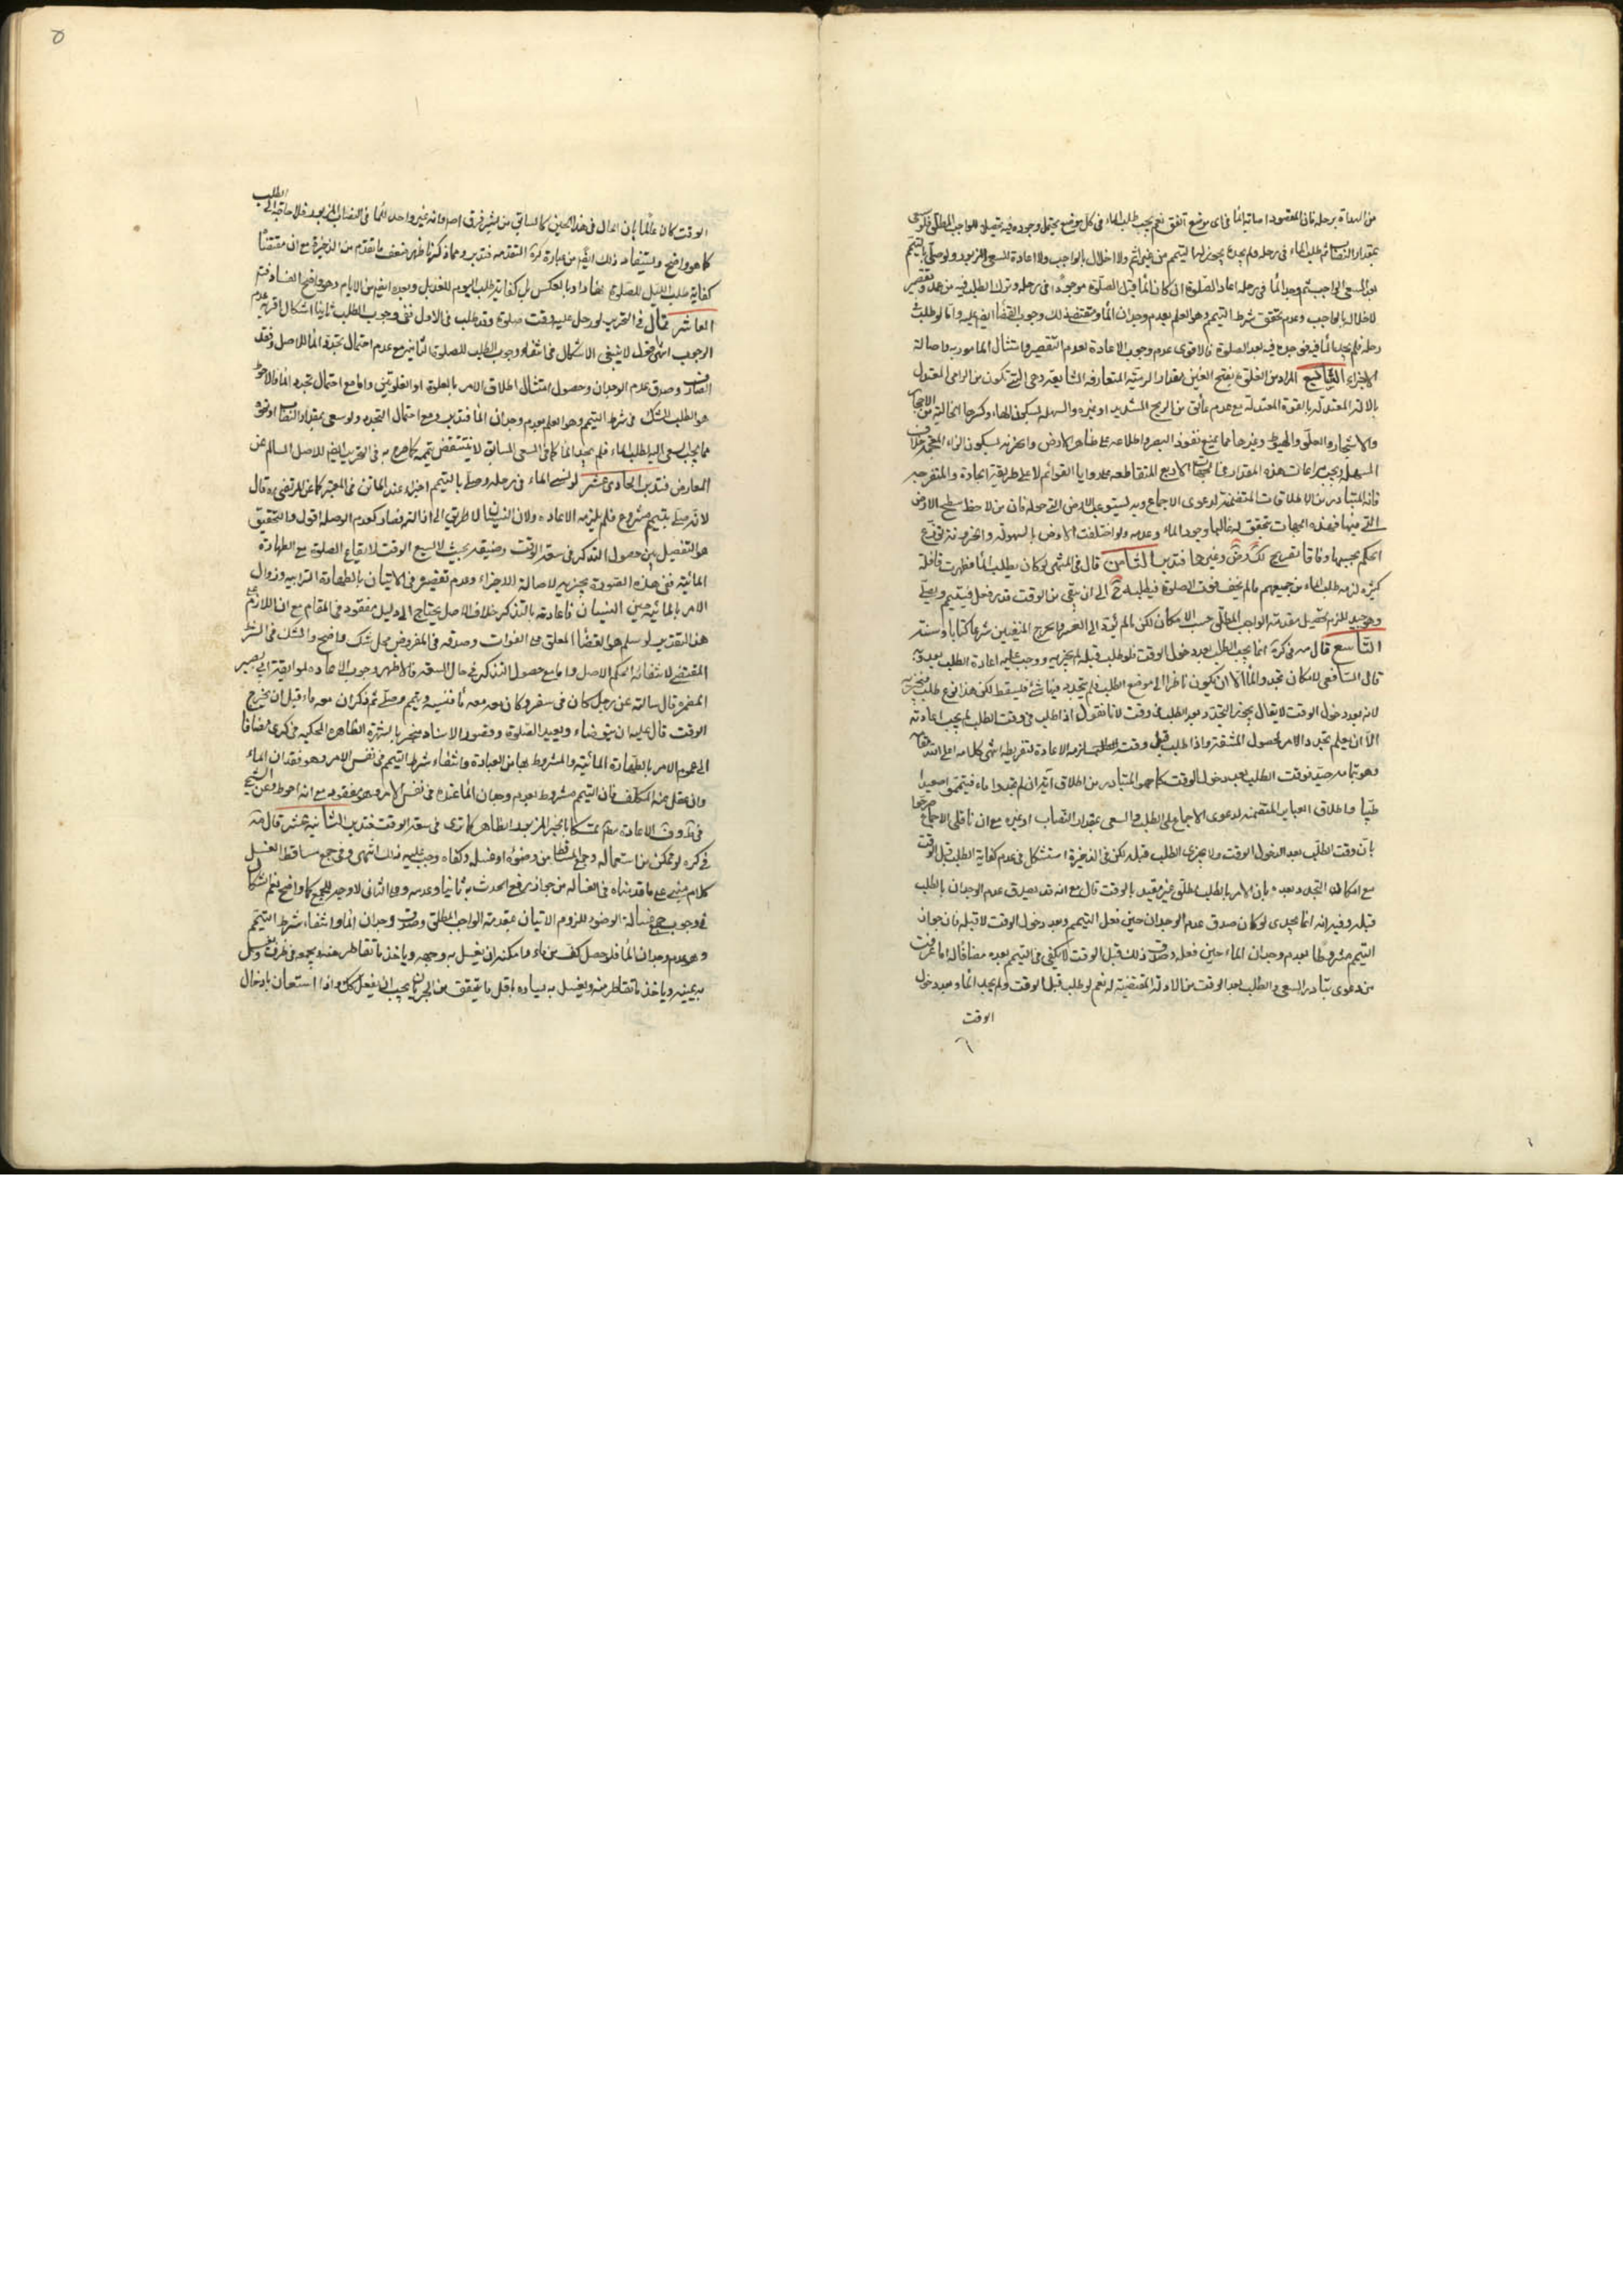 من البداءة برحله فان المقصود اصابة الماء فى اى موضع اتفق نعم يجب طلب الماء فى كل موضع يحتمل وجوده فيه تحصيلا للواجب المطلق فلو سعى
بمقدار النصاب ثم طلب الماء فى رحله ولم يجده يجوز له التيمم من غير اثم ولا اخلال بالواجب ولا اعادة للسعى المزبور ولو صلى بالتيمم
بعد السعى الواجب ثم وجد الماء فى رحله اعاد الصلوة ان كان الماء قبل الصلوة موجودا فى رحله وترك الطلب فيه من جهة تقصير
لاخلاله بالواجب وعدم تحقق شرط التيمم وهو العلم بعدم وجدان الماء ومقتضى ذلك وجوب القضاء ايضا عليه واما لو طلب
رحله فلم يجد الماء فيه فوجده فيه بعد الصلوة فالاقوى عدم وجوب الاعادة لعدم التقصير وامتثال المامور به واصالة
الاجزاء السابع المراد من الغلوة بفتح الغين مقدار الرمية المتعارفة الشايعة وهى التى تكون من الرامى المعتدل
بالالة المعتدلة بالقوة المعتدلة مع عدم عائق من الريح الشديد او غيره والسهلة بسكون الهاء وكسرها الخالية من الاحجار
والاشجار والعلو والهبوط وغيرها مما يمنع نفوذ البصر واطلاعه على ظاهر الارض والحزنة بسكون الزاء المعجمة خلاف
السهلة ويجب مراعات هذه المقدار فى الجهات الاربع المتقاطعة على زوايا القوائم لا على طريقة الجادة والمنفرجة
فانه المتبادر من الاطلاقات المتضمنة لدعوى الاجماع وبه يستوعب الارض التى حوله فان من لاحظ سطح الارض
التى فيها فهذه الجهات يتحقق له غالبا وجود الماء وعدمه ولو اختلفت الارض بالسهولة والحزونة توزع
الحكم بحسبها وفاقا لصريح لك وض وغيرها فتدبر الثامن قال فى المنتهى لو كان يطلب الماء فظهرت قافلة
كثيرة لزمه طلب الماء من جميعهم ما لم يخف فوت الصلوة فيطلبه ح الى ان يبقى من الوقت قدر فعل فيتيمم ويصلى
وهو جيد للزوم تحصيل مقدمة الواجب المطلق حسب الامكان لكن ما لم يؤد الى العسر والحرج المنفيين شرعا كتابا وسنة
التاسع قال مه فى كره انما يجب الطلب بعد دخول الوقت فلو طلب قبله لم يجزيه ووجب عليه اعادة الطلب بعده وبه
قال الشافعى لامكان تجدد الماء الا ان يكون ناظرا الى موضع الطلب فلم يتجدد فيه شئ فليسقط لكن هذا نوع طلب فيجزيه
لانه بعد دخول الوقت لا يقال يجوز التجدد بعد الطلب فى وقت لانا نقول اذا طلب فى وقت الطلب لم يجب اعادته
الا ان يعلم تجدد الامر لحصول المشقة واذا طلب قبل وقت الطلب لزمه الاعادة لتفريطه انتهى كلامه اعلى الله مقامه
وهو بتمامه جيد فوقت الطلب بعد دخول الوقت كما هو المتبادر من اطلاق آية ان لم تجدوا ماء فتيمموا صعيدا
طيبا واطلاق العبائر المتضمنة لدعوى الاجماع على الطلب والسعى بمقدار النصاب او غيره مع ان ناقلى الاجماع صرحوا
بان وقت الطلب بعد الدخول الوقت ولا يجزى الطلب قبله لكن فى الذخيرة استشكل فى عدم كفاية الطلب قبل الوقت
مع امكان التجدد بعده بان الامر بالطلب مطلق غير مقيد بالوقت قال مع انه قد يصدق عدم الوجدان بالطلب
قبله وفيه انه انما يجدى لو كان صدق عدم الوجدان حين فعل التيمم وبعد دخول الوقت لا قبله فان جواز
التيمم مشروط بعدم وجدان الماء حين فعله وصدق ذلك قبل الوقت لا يكفى فى التيمم بعده مضافا لما عرفت
من دعوى تبادر السعى والطلب بعد الوقت من الادلة المقتضية له نعم لو طلب قبل الوقت ولم يجد الماء وبعد دخول
الوقت
٦
٥
الوقت كان عالما بان الحال فى هذا الحين كالسابق من غير فرق اصلا وانه غير واجد الماء فى النصاب المزبور فلا حاجة الى الطلب
كما هو واضح ويستفاد ذلك ايضا من عبارة كرة المتقدمة فتدبر ومما ذكرنا ظهر ضعف ما تقدم من الذخيرة مع ان مقتضا
كفاية طلب الليل للصلوة نهارا وبالعكس بل كفاية طلب اليوم للغد بل وبعده ايضا من الايام وهو واضح الفساد فتم
العاشر قال فى التحرير لو دخل عليه وقت صلوة وقد طلب فى الاول ففى وجوب الطلب ثانيا اشكال اقربه عدم
الوجوب انتهى اقول لا ينبغى الاشكال فى انتفاء وجوب الطلب للصلوة الثانية مع عدم احتمال تجدد الماء للاصل وفقد
الصارف وصدق عدم الوجدان وحصول امتثال اطلاق الامر بالغلوة او الغلوتين واما مع احتمال تجدد الماء فالاحوط
هو الطلب للشك فى شرط التيمم وهو العلم بعدم وجدان الماء فتدبر ومع احتمال التجدد ولو سعى بمقدار النصاب او نحوه
مما يجب السعى اليه لطلب الماء فلم يجد الماء كما فى السعى السابق لا ينتقض تيممه كما صرح به فى التحرير ايضا للاصل السالم عن
المعارض فتدبر الحادى عشر لو نسى الماء فى رحله وصلى بالتيمم اجزاه عند الماتن فى المعتبر كما عن المرتضى ره قال
لانه صلى بتيمم مشروع فلم يلزمه الاعادة ولان النسيان لا طريق الى ازالته فصار كعدم الوصلة اقول والتحقيق
هو التفصيل بين حصول التذكر فى سعة الوقت وضيقه بحيث لا يسع الوقت لايقاع الصلوة مع الطهارة
المائية ففى هذه الصورة يجزيه لاصالة الاجزاء وعدم تقصير فى الاتيان بالطهارة الترابية وزوال
الامر بالمائية حين النسيان فاعادته بالتذكر خلاف الاصل يحتاج الى دليل مفقود فى المقام مع ان اللازم على
هذا التقدير لو سلم هو القضاء المعلق على الفوات وصدقه فى المفروض محل شك واضح والشك فى الشرط
المقتضى لانتفائه بحكم الاصل واما مع حصول التذكر فى حال السعة فالاظهر وجوب الاعادة لموثقة ابى بصير
المضمرة قال سالته عن رجل كان فى سفر وكان معه ماء فنسيه وتيمم وصلى ثم ذكر ان معه ماء قبل ان يخرج
الوقت قال عليه ان يتوضاء ويعيد الصلوة وقصور الاسناد منجبر بالشهرة الظاهرة المحكية فى كرى مضافا
الى عموم الامر بالطهارة المائية والمشروط بها من العبادة وانتفاء شرط التيمم فى نفس الامر وهو فقدان الماء
وان غفل عنه المكلف فان التيمم مشروط بعدم وجدان الماء عنده فى نفس الامر وهو مفقود مع انه احوط وعن الشيخ
فى ف الاعادة تمسكا بالخبر المزبور الظاهر كما ترى فى سعة الوقت فتدبر الثانية عشر قال مه
فى كره لو تمكن من استعماله وجمع المتساقط من وضوئه او غسله وكفاه وجب عليه ذلك انتهى وفى جمع مساقط الغسل
كلام مبنى على ما قدمناه فى الغسالة من جواز رفع الحدث به ثانيا وعدمه وعلى الثانى لا وجه للجمع كما واضح نعم لا اشكال
فى وجوب جمع غسالة الوضوء للزوم الاتيان بمقدمة الواجب المطلق وصدق وجدان الماء وانتفاء شرط التيمم
وهو عدم وجدان الماء فلا حصل كف من ماء وامكنه ان يغسل به وجهه وياخذ ما تقاطر عنه ويجمعه فى ظرف ويغسل
به يمينه وياخذ ما تقاطر منه ويغسل به يساره باقل ما يتحقق من الجريان يجب ان يفعل كك واذا استعان بادخال